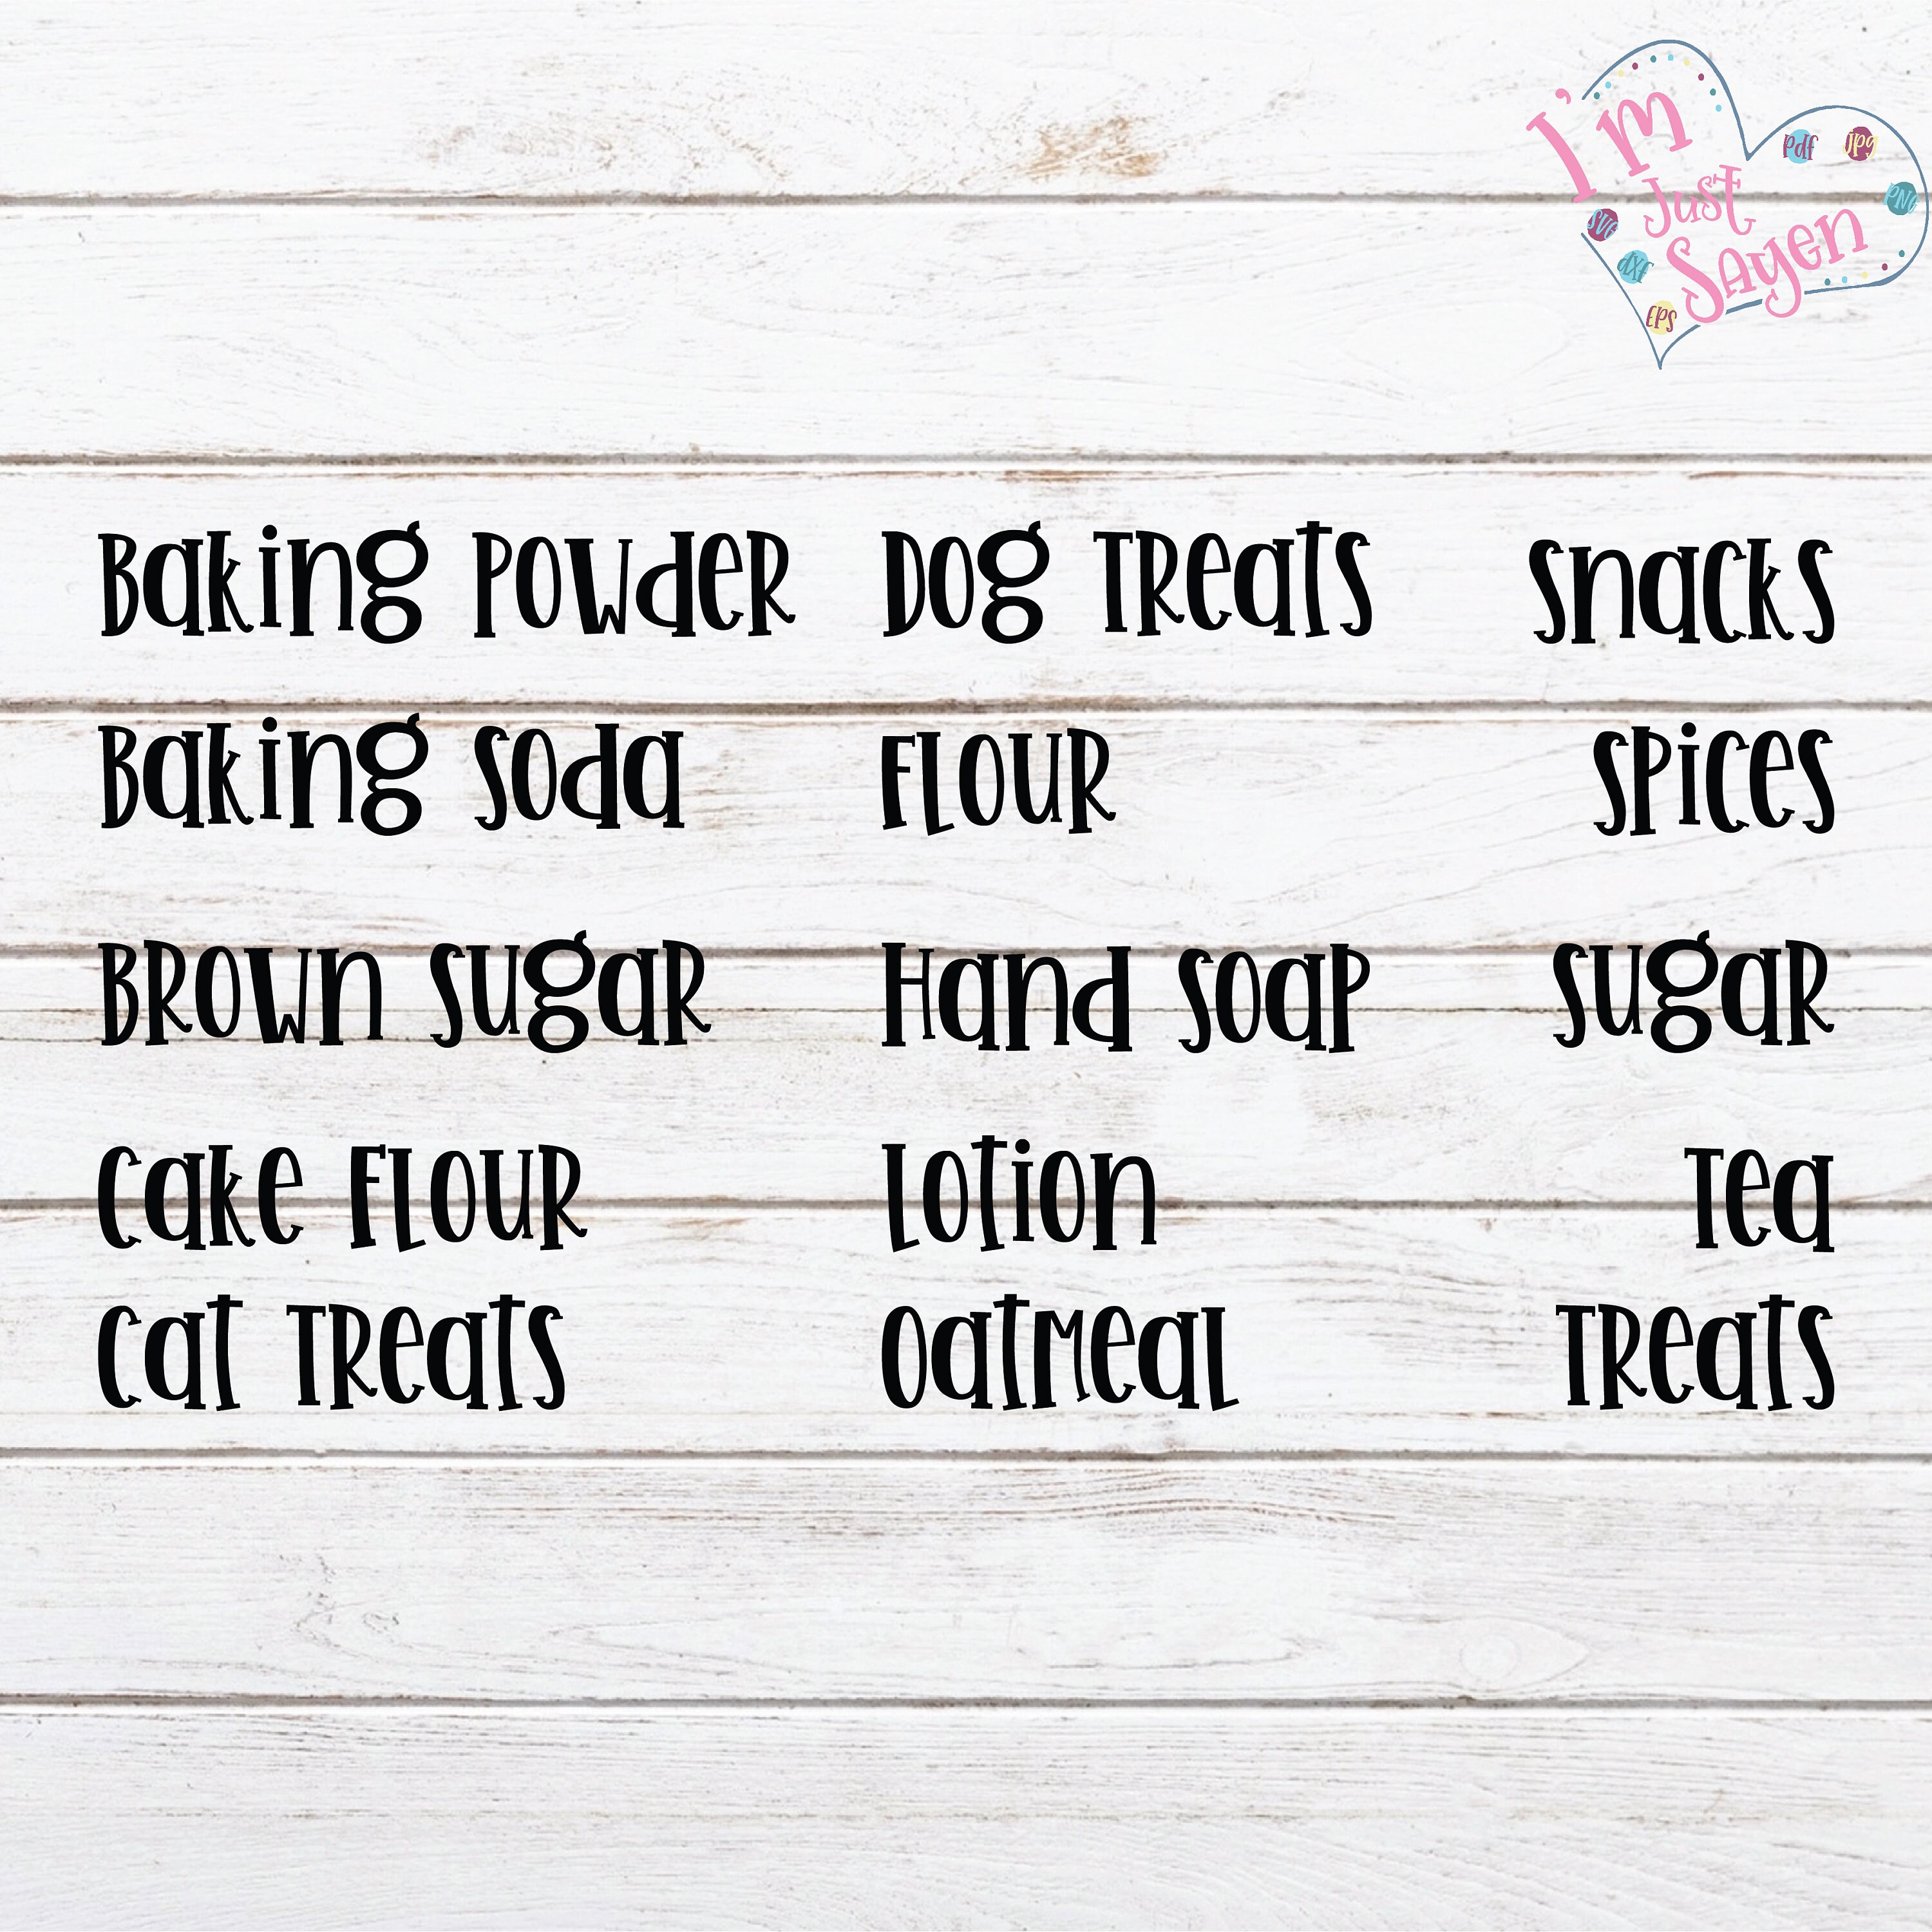 I'm
Just
Sayen
Pdf
JPg
PNG
SVG
dXf
EPS
Baking Powder Dog Treats Snacks
Baking Soda Flour Spices
Brown Sugar Hand Soap Sugar
Cake Flour Lotion Tea
Cat Treats Oatmeal Treats